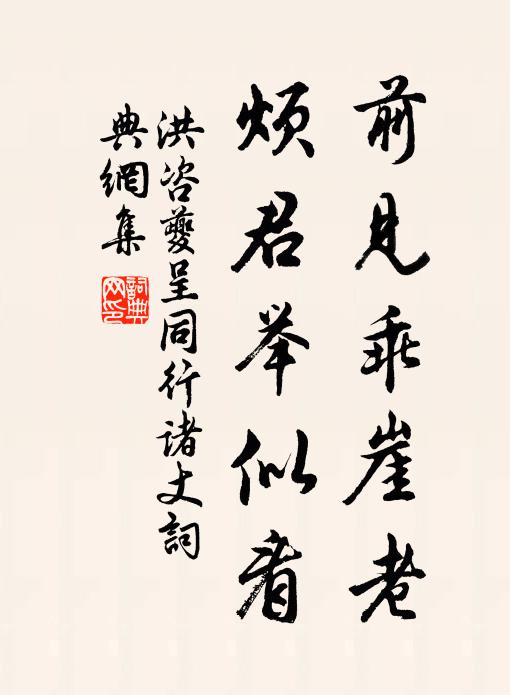 前見乖崖老
煩君举似看
洪咨夔呈同行诸丈詞
典網集
詞典
网印